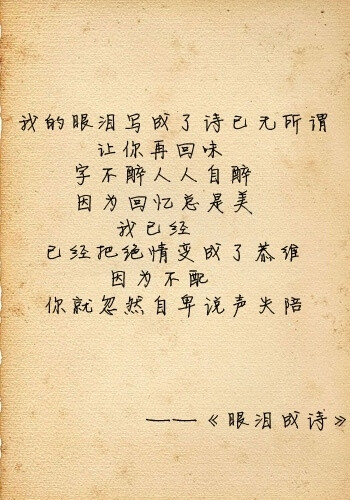 我的眼泪写成了诗已无所谓
让你再回味
字不醉人人自醉
因为回忆总是美
我已经
已经把绝情变成了恭维
因为不配
你就忽然自卑说声失陪
——《眼泪成诗》